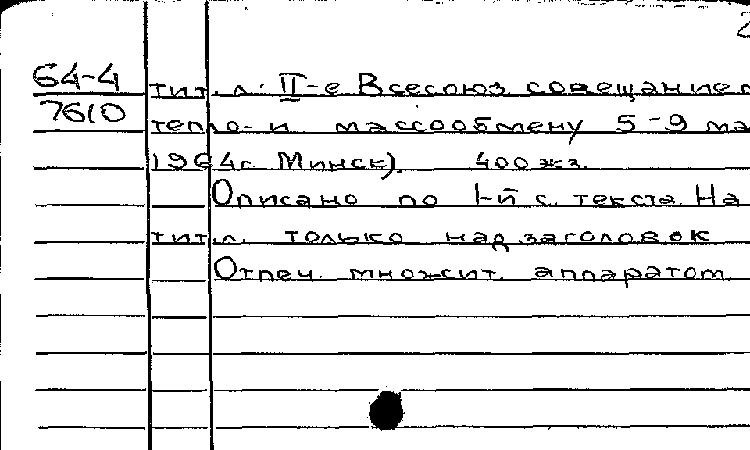 2
64-4
7610
тит. л. II-е Всесоюз. совещание п
тепло- и массообмену 5-9 ма
1964г. Минск). 400 экз.
Описано по 1-й с. текста. На
тит.л. только надзаголовок
Отпеч. множит. аппаратом